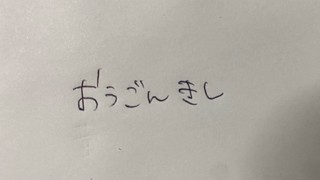 おうごんきし